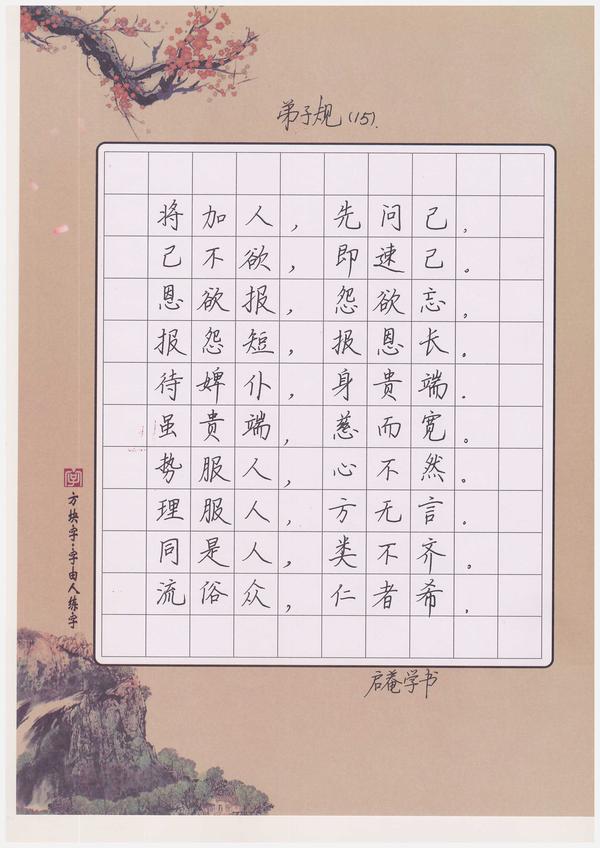 弟子规(15).
将加人，先问己，
己不欲，即速己。
恩欲报，怨欲忘，
报怨短，报恩长。
待婢仆，身贵端.
虽贵端，慈而宽。
势服人，心不然。
理服人，方无言.
同是人，类不齐。
流俗众，仁者希，
字
方块字·字由人练字
启菴学书